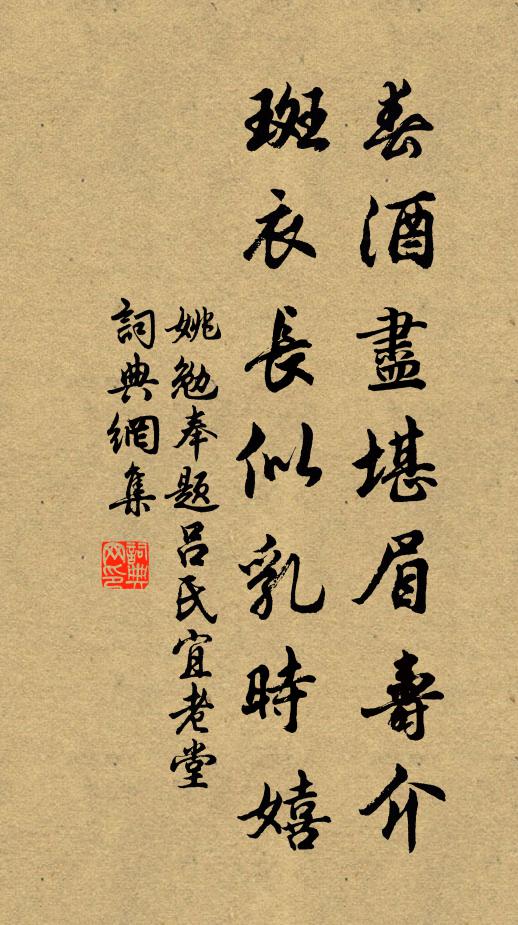 春酒盡堪眉壽介
斑衣長似乳時嬉
姚勉奉題呂氏宜老堂
詞典網集
詞典网印